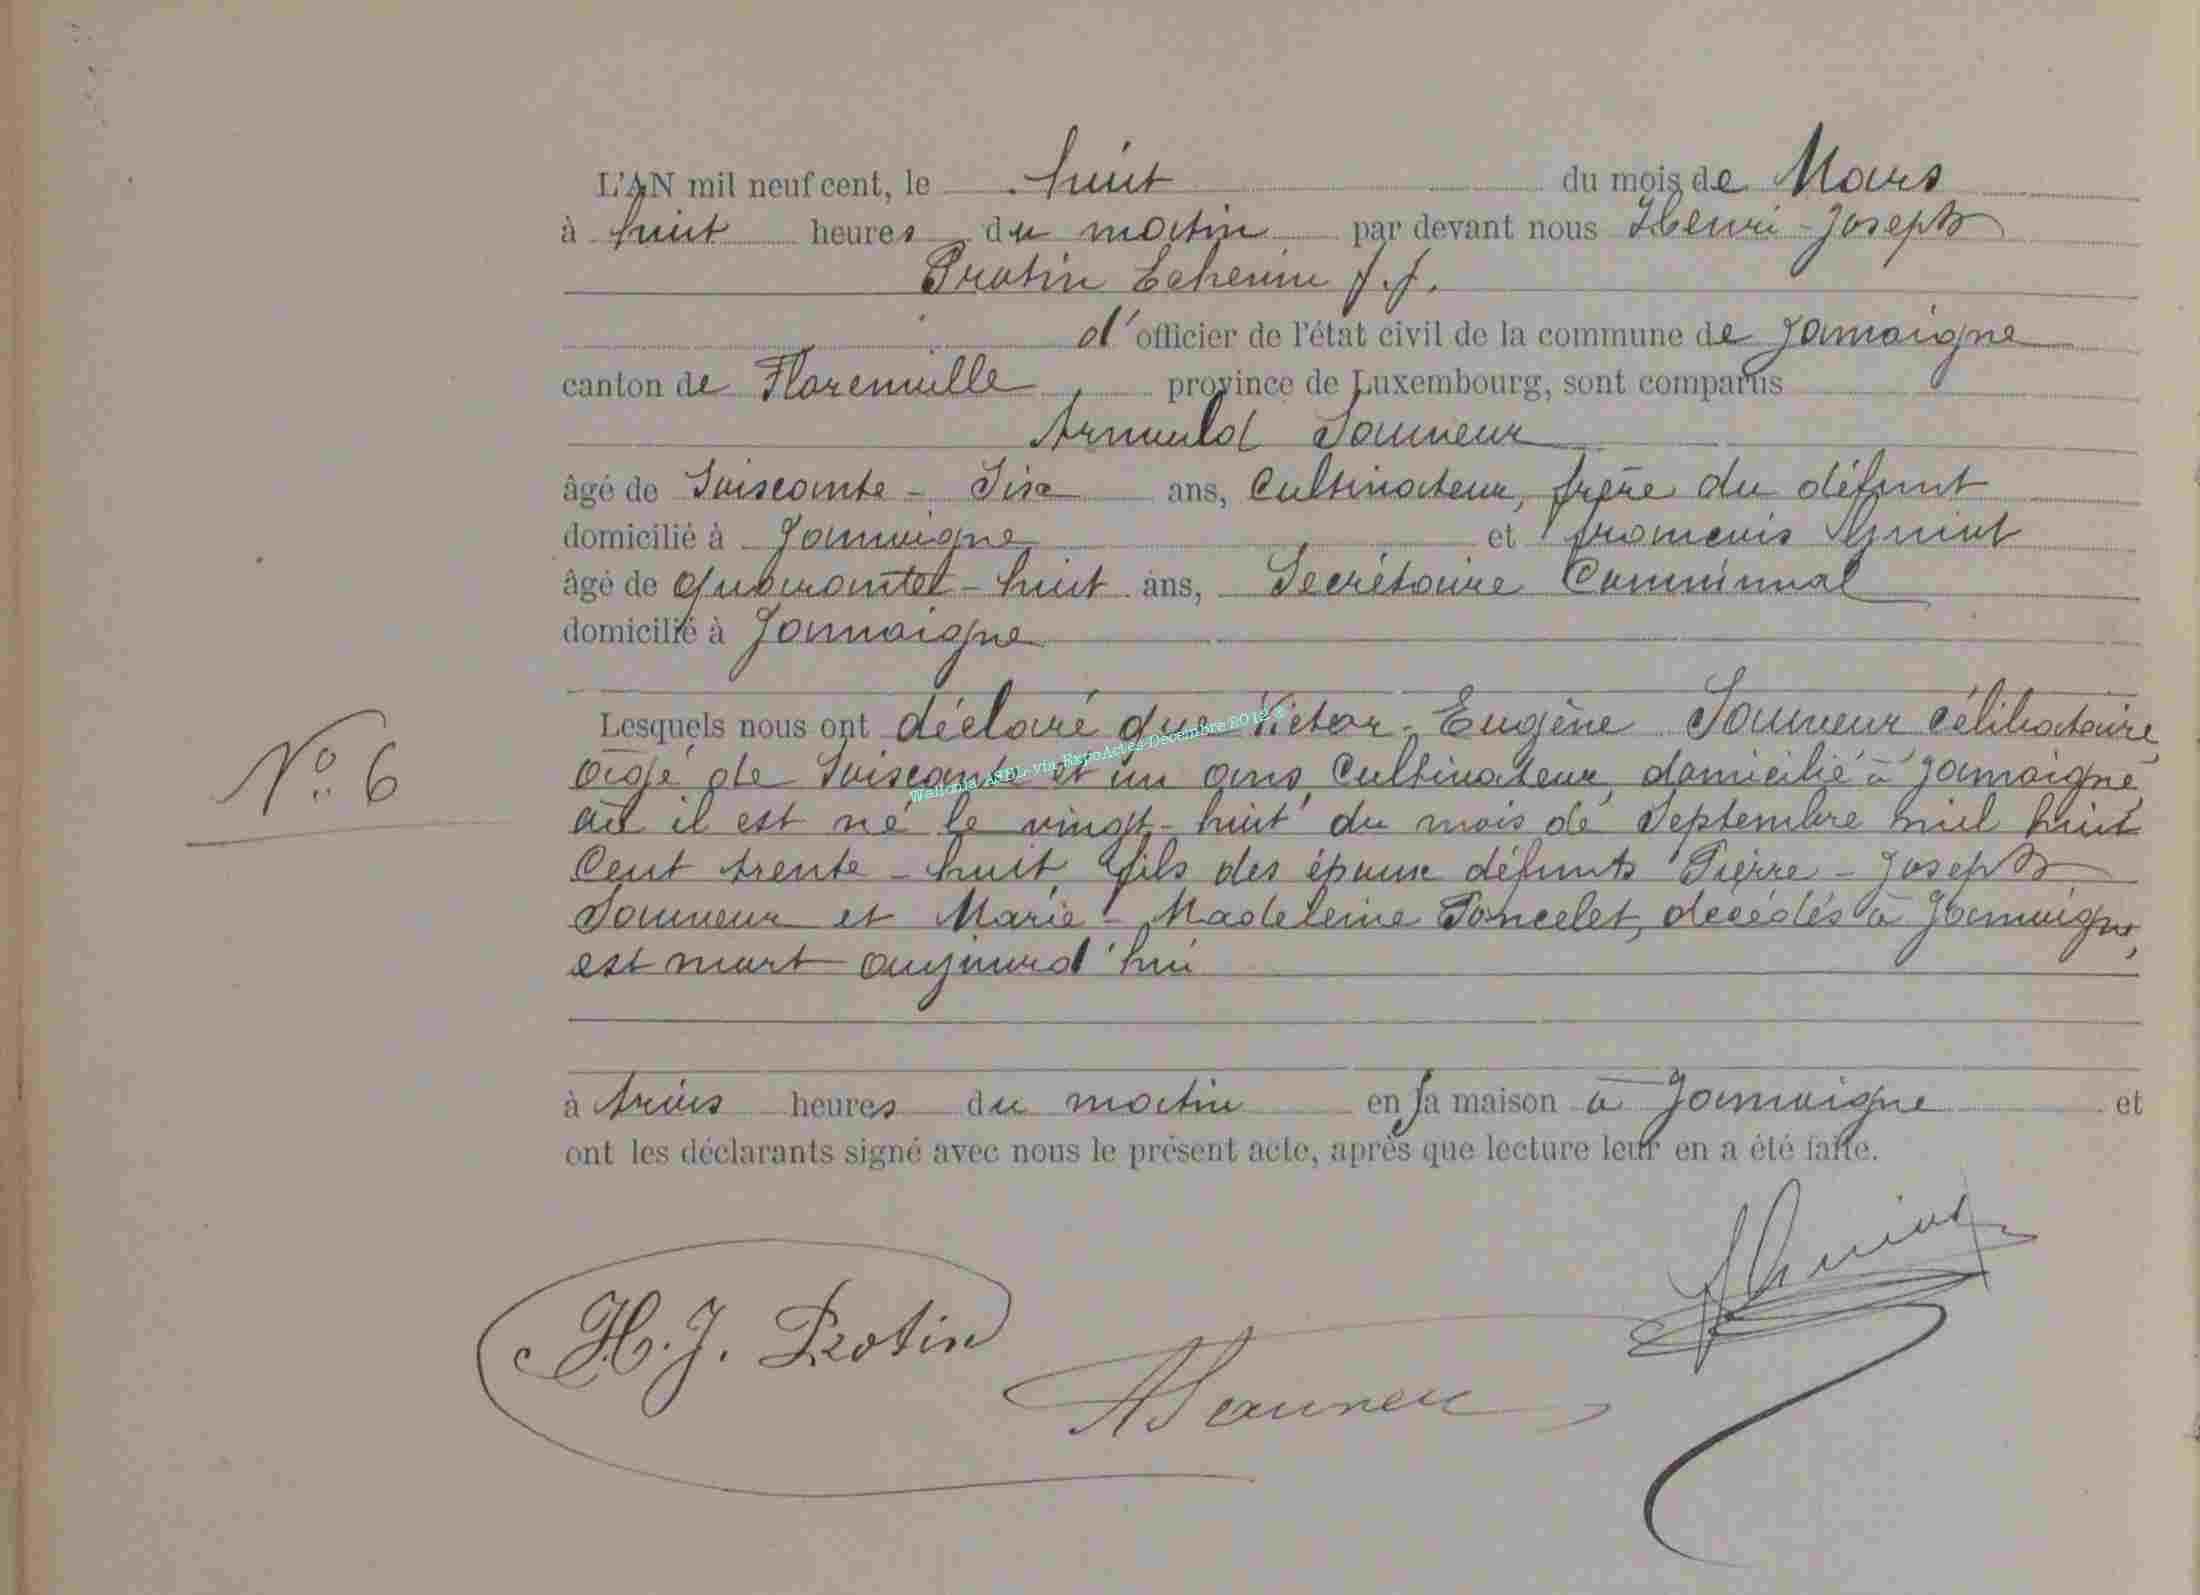 L'AN mil neuf cent, le huit du mois de Mars
à huit heures du matin par devant nous Henri-Joseph
Protin Echevin f.f.
d'officier de l'état civil de la commune de Jamoigne
canton de Florenville province de Luxembourg, sont comparus
Arnould Sauneur
âgé de Soixante-Six ans, Cultivateur, frère du défunt
domicilié à Jamoigne et francois
âgé de quarante-huit ans, Secrétaire Communal
domicilié à Jamoigne
Lesquels nous ont déclaré que Victor-Eugène Sauneur célibataire,
N° 6
âgé de Soixante et un ans, Cultivateur, domicilié à Jamoigne,
où il est né le vingt-huit du mois de Septembre mil huit
Cent trente-huit, fils des époux défunts Pierre-Joseph
Sauneur et Marie-Madeleine Poncelet, decédés à Jamoigne,
est mort aujourd'hui
Wallonia ASBL via ExpoActes Décembre 2012
à trois heures du matin en sa maison à Jamoigne et
ont les déclarants signé avec nous le présent acte, après que lecture leur en a été faite.
H. J. Protin
A Sauneur